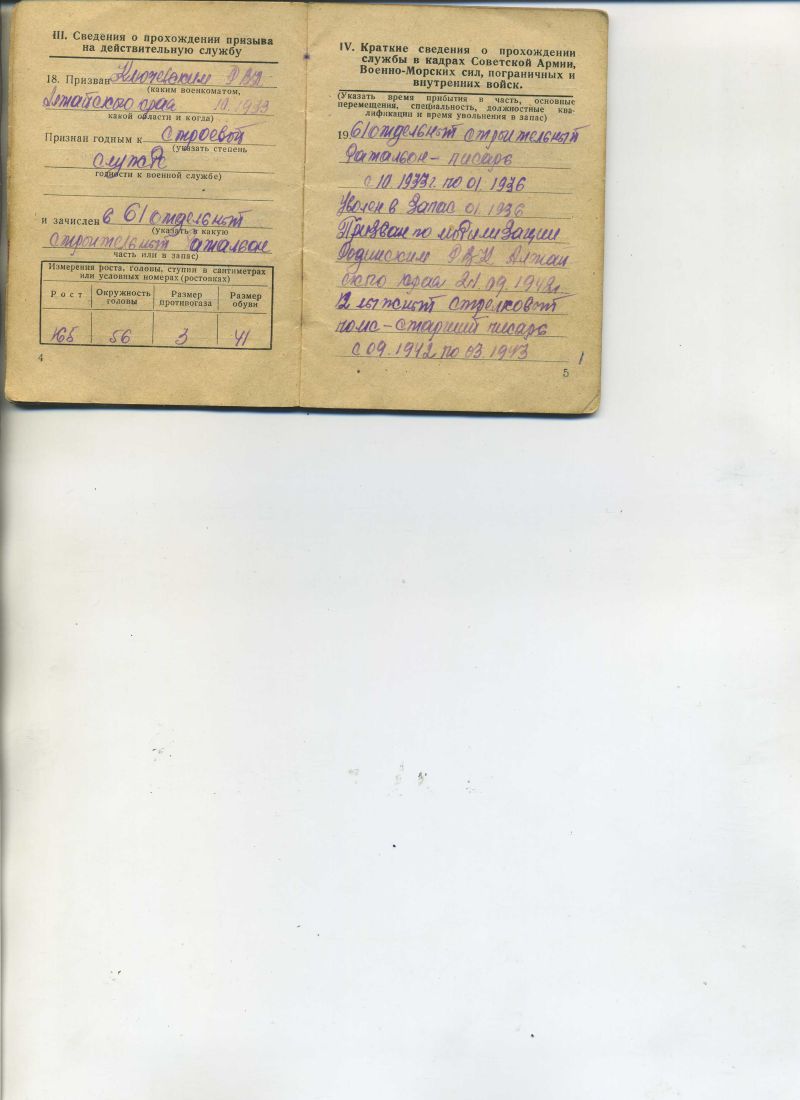 III. Сведения о прохождении призыва
на действительную службу
18. Призван Ключевским РВК
(каким военкоматом,
Алтайского края 10.1933
какой области и когда)
Признан годным к строевой
(указать степень
службе
годности к военной службе)
и зачислен в 61 отдельный
(указать в какую
строительный батальон
часть или в запас)
Измерения роста, головы, ступни в сантиметрах
или условных номерах (ростовках)
Рост Окружность головы Размер противогаза Размер обуви
165 56 3 41
4
IV. Краткие сведения о прохождении
службы в кадрах Советской Армии,
Военно-Морских сил, пограничных и
внутренних войск.
(Указать время прибытия в часть, основные
перемещения, специальность, должностные ква-
лификации и время увольнения в запас)
19. 61 отдельный строительный
батальон – писарь
с 10.1933г по 01.1936
Уволен в запас 01.1936
Призван по мобилизации
Родинским РВК Алтай
ского края 24.09.1942г.
12 лыжный стрелковый
полк – старший писарь
с 09.1942 по 03.1943
5